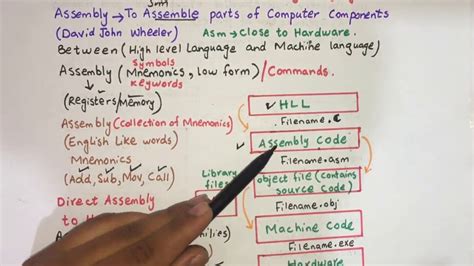 Assembly → To Assemble parts of Computer Components
(David John Wheeler) Asm → Close to Hardware.
Between (High level Language and Machine language)
symbols
Assembly (Mnemonics, low form) / Commands.
keywords
(Registers/Memory)
HLL
Filename.C
Assembly (collection of Mnemonics)
(English Like words)
Assembly Code
Filename.asm
Mnemonics
(Add, Sub, Mov, Call)
Library
files
object file (contains
source code)
Filename.obj
Direct Assembly
to H
Machine Code
Filename.exe
Hardware